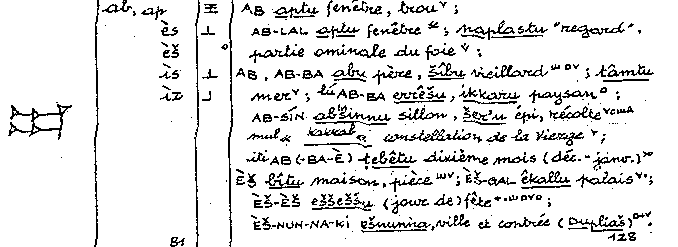 ab, ap AB aptu fenêtre, trou ;
ès AB-LAL aptu fenêtre ; naplastu "regard",
èš partie ominale du foie ;
ìs AB, AB-BA abu père, šîbu vieillard ; tâmtu
ìz mer ; lú AB-BA errêšu, ikkaru paysan ;
AB-SÍN abšinnu sillon, šer'u épi, récolte
mul kakkab constellation de la Vierge ;
iti AB (-BA-È) ṭebêtu dixième mois (déc.-janv.)
ÈŠ bîtu maison, pièce ; ÈŠ-GAL êkallu palais ;
ÈŠ-ÈŠ eššeššu (jour de) fête
ÈŠ-NUN-NA-KI ešnunna, ville et contrée (Dupliaš)
81 128